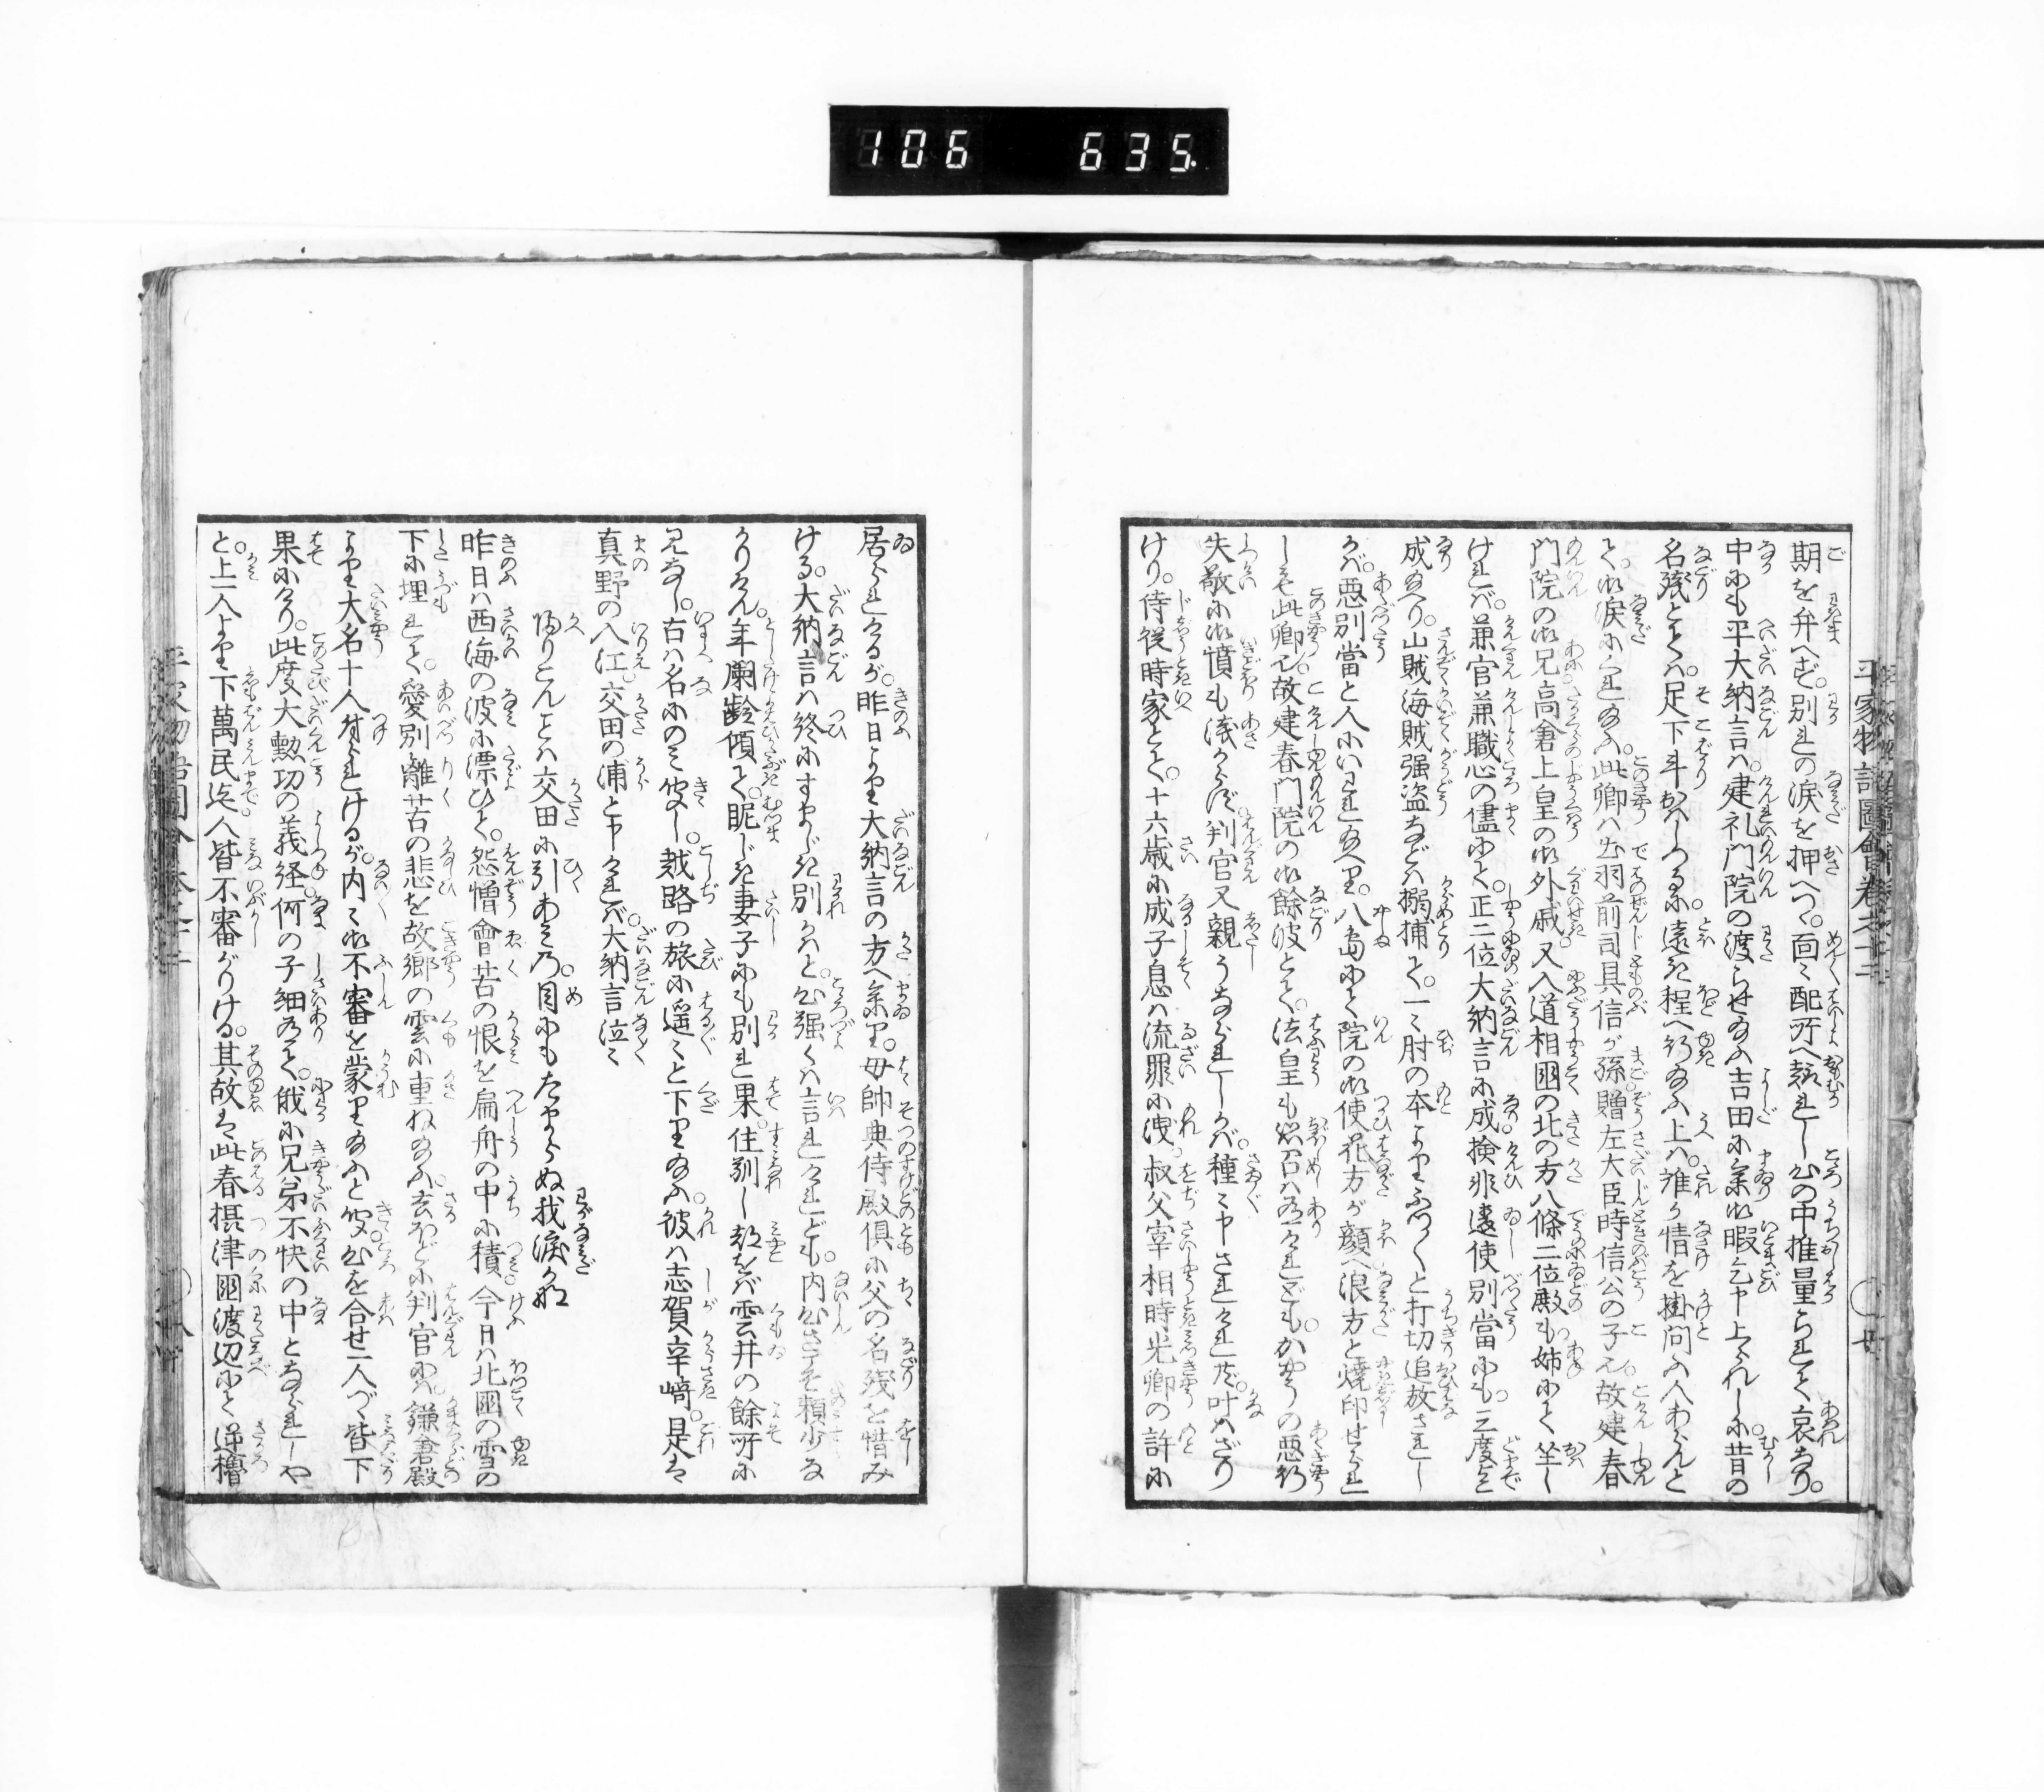 106 635.
平家物語圖會巻之十二
期を弁へず。別れの涙を押へつゝ。面々配所へ赴れし心の中推量られて哀なり。
中にも平大納言ハ。建礼門院の渡らせ給ふ吉田に参り御暇乞申上られしに。昔の
名残とてハ。足下斗おハしつるに。遠き程へ行給ふ上ハ。誰か情を掛問ふ人あらんと
て。御涙にくれ給ふ。此卿ハ出羽前司具信が孫。贈左大臣時信公の子也。故建春
門院の御兄。高倉上皇の御外戚。又入道相國の北の方八條二位殿も姉にて坐し
けれバ。兼官兼職心の儘にて。正二位大納言に成。検非違使別當にも。三度迄
成給へり。山賊海賊强盗などハ搦捕て。一々肘の本よりふつ〳〵と打切追放されし
かバ。悪別當と人にいはれ給へり。八島にて院の御使花方が顔へ浪方と燒印せられ
しも此卿也。故建春門院の御餘波とて。法皇も思召ハ有けれども。かやうの悪行
失敬に御憤も浅からず。判官又親うなられしかバ。種々申されけれ共。叶ハざり
けり。侍従時家とて。十六歳に成子息ハ流罪に洩。叔父宰相時光卿の許に
居られけるが。昨日より大納言の方へ参り。母帥典侍殿倶に父の名残を惜み
ける。大納言ハ終にすまじき別かハと。心强くハ言れけれども。内心さこそ頼少な
かりけん。年闌齢傾て。昵じき妻子にも別れ果。住馴し都をバ雲井の餘所に
見なし。古ハ名にのミ聞し。越路の旅に遥々と下り給ふ。彼ハ志賀辛﨑。是は
真野の入江。交田の浦と申けれバ。大納言泣々
帰りこんことハ交田に引あミの。目にもたまらぬ我涙かな
昨日ハ西海の波に漂ひて。怨憎會苦の恨を扁舟の中に積。今日ハ北國の雪の
下に埋れて。愛別離苦の悲を故郷の雲に重ね給ふ。去ほどに判官にハ。鎌倉殿
より大名十人付られけるが。内々御不審を蒙り給ふと聞。心を合せ一人づゝ皆下
果にけり。此度大勲功の義経。何の子細有て。俄に兄弟不快の中となられしや
と。上一人より下萬民迄。人皆不審がりける。其故は此春摂津國渡辺にて逆櫓